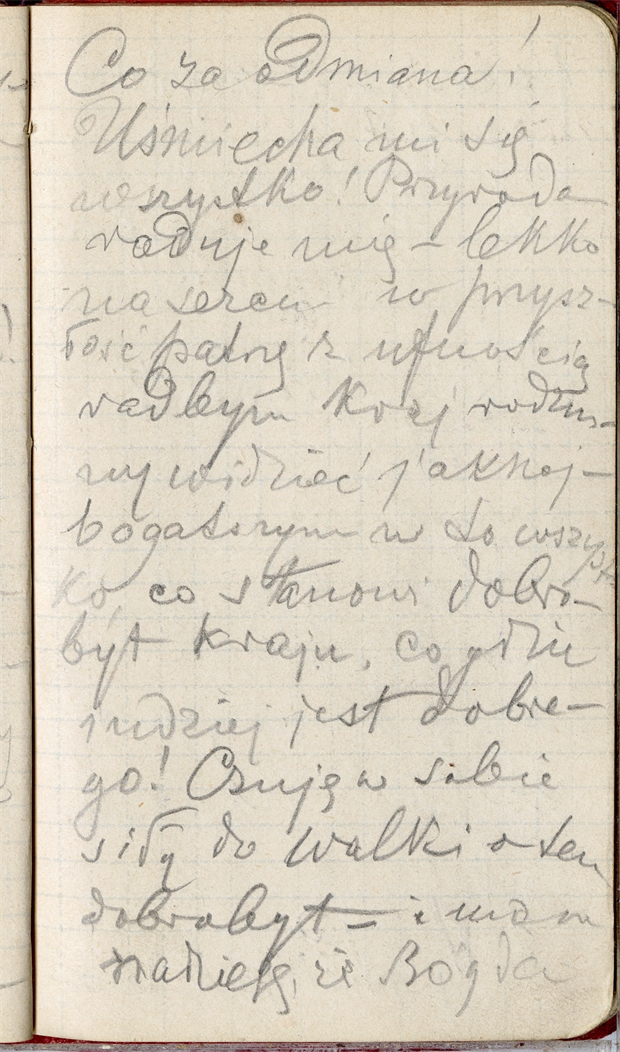 Co za odmiana!
Uśmiecha mi się
wszystko! Przyroda
raduje mię – lekko
na sercu w przysz-
łość patrzę z ufnością
radbym kraj rodzin-
ny widzieć jaknaj-
bogatszym w to wszyst-
ko, co stanowi dobro-
byt kraju, co gdzie
indziej jest dobre-
go! Czuję w sobie
siły do walki o ten
dobrobyt – i mam
nadzieję, że Bóg da